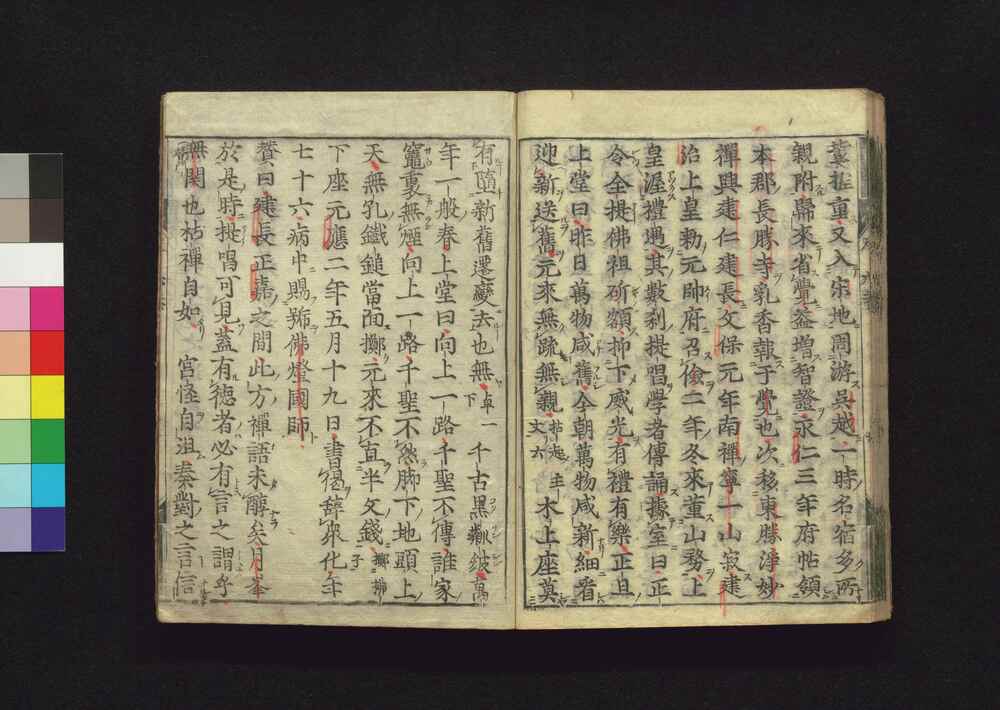 蒙推重又入宋地周游吳越一時名宿多所
親附歸來省覺益增智證永仁三年府帖領
本郡長勝寺乳香報于覺也次移東勝淨妙
禪興建仁建長文保元年南禪寧一山寂建
治上皇勅元帥府召儉二年冬來董山務上
皇渥禮遇其數刹提唱學者傳誦據室曰正
令全提佛祖斫額抑下威光有禮有樂正旦
上堂曰昨日萬物咸舊今朝萬物咸新細看
迎新送舊元來無疏無親拈起主丈六木上座莫
有隨新舊遷變去也無卓一下千古黑皴皴萬
年一般春上堂曰向上一路千聖不傳誰家
竈裏無煙向上一路千聖不然脚下地頭上
天無孔鐵鎚當面擲元來不直半文錢擲拂子
下座元應二年五月十九日書偈辭衆化年
七十六病中賜號佛燈國師
贊曰建長正嘉之間此方禪語未醇矣月峯
於是時提唱可見蓋有德者必有言之謂乎
無関也枯禪自如宮怪自沮奏對之言信